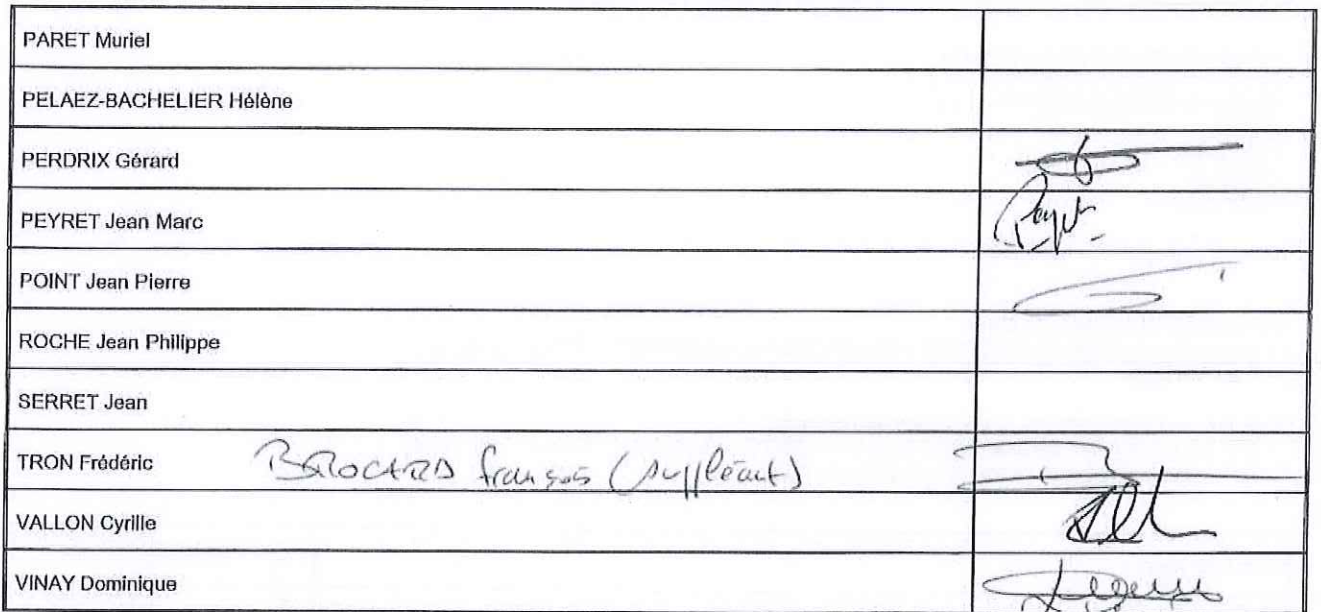 PARET Muriel
PELAEZ-BACHELIER Hélène
PERDRIX Gérard
PEYRET Jean Marc
POINT Jean Pierre
ROCHE Jean Philippe
SERRET Jean
TRON Frédéric BROCARD françois (suppléant)
VALLON Cyrille
VINAY Dominique